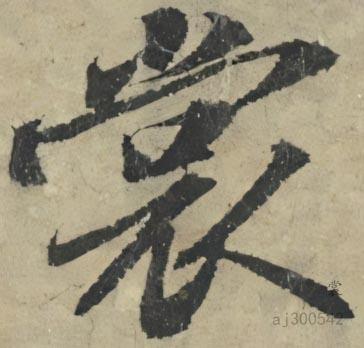 裳
裳
aj300542